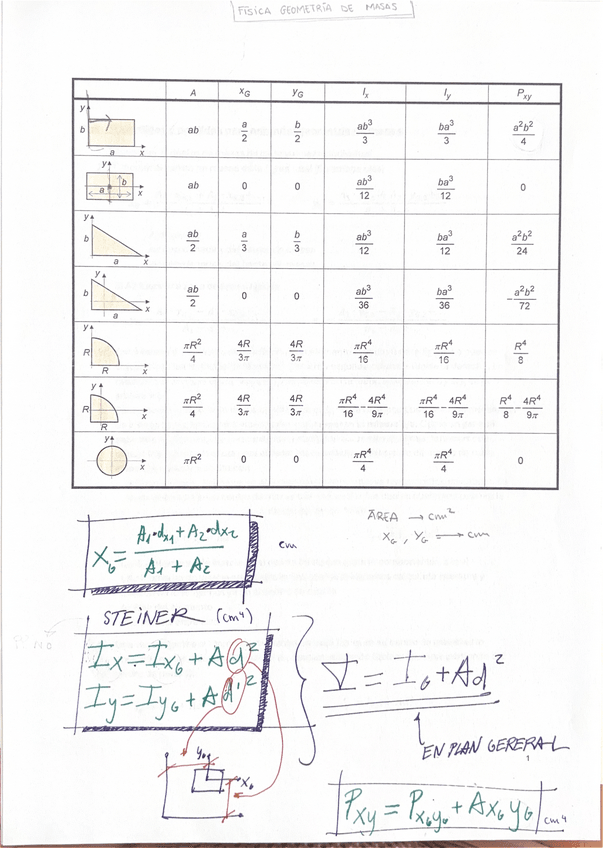 FÍSICA GEOMETRÍA DE MASAS
A x_G y_G I_x I_y P_xy
y b a x ab a/2 b/2 ab³/3 ba³/3 a²b²/4
y b a x ab 0 0 ab³/12 ba³/12 0
y b a x ab/2 a/3 b/3 ab³/12 ba³/12 a²b²/24
y b a x ab/2 0 0 ab³/36 ba³/36 -a²b²/72
y R R x πR²/4 4R/3π 4R/3π πR⁴/16 πR⁴/16 R⁴/8
y R R x πR²/4 4R/3π 4R/3π πR⁴/16 - 4R⁴/9π πR⁴/16 - 4R⁴/9π R⁴/8 - 4R⁴/9π
y x πR² 0 0 πR⁴/4 πR⁴/4 0
X_G = (A₁·d_x1 + A₂·d_x2)/(A₁ + A₂) cm
ÁREA → cm²
X_G, Y_G → cm
STEINER (cm⁴)
I_x = I_xG + A d²
I_y = I_yG + A d'²
I = I_G + A d²
EN PLAN GERERAL
1
y_G
x_G
P_xy = P_xGyG + A x_G y_G cm⁴